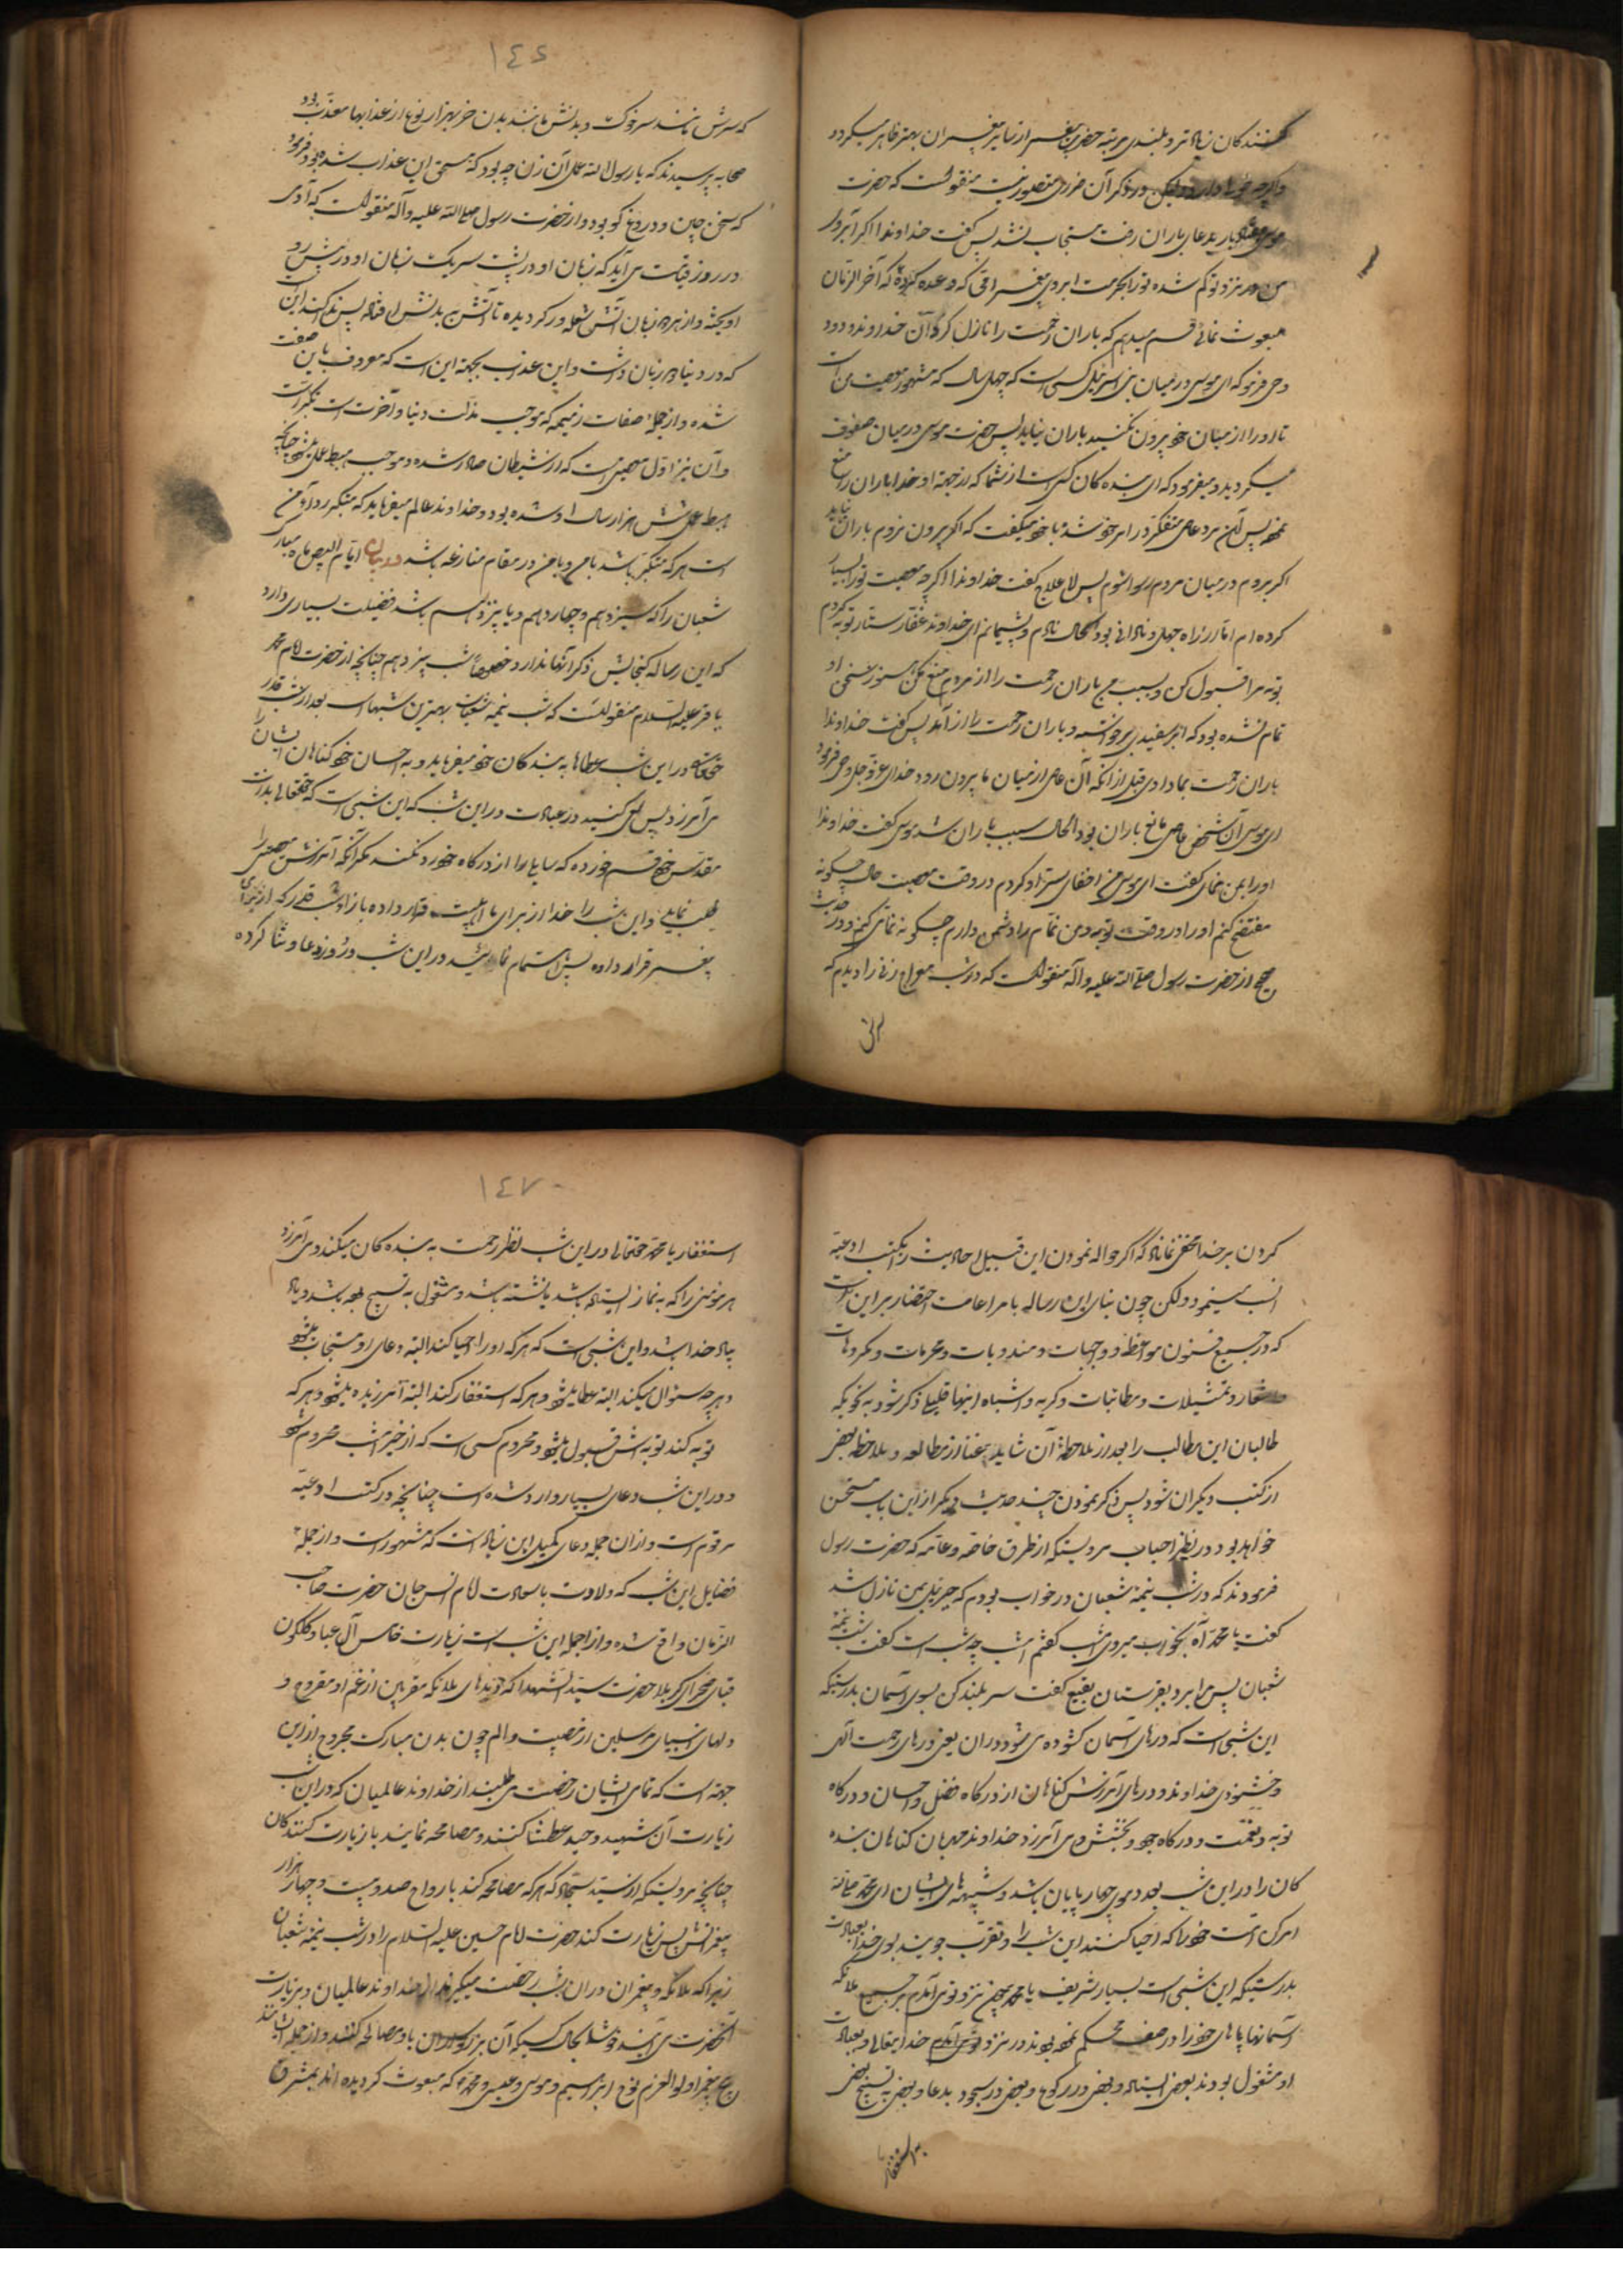 کنندکان زیاد تر و بلندی مرتبه حضرت پیغمبر از سایر پیغمبران بهتر ظاهر میکردد
واکرچه در ذکر آن ضرری متصور نیست منقولست که حضرت
موسی بدعای باران رفت مستجاب نشد پس کفت خداوندا اکر آبروی
من در نزد تو کم شده تو را بحرمت ابروی پیغمبر امی که وعده کردهٔ که آخر الزمان
مبعوث نمائی قسم میدهم که باران رحمت را نازل کردان خداوند ودود
وحی فرمود که ای موسی در میان بنی اسرئیل کسی است که چهل سال که مشهور معصیت من است
تا او را از میان خود بیرون نکنید باران نیاید پس حضرت موسی در میان صفوف
میکردید و میفرمود که ای بنده کان کی است از شما که از جهة او خدا باران را منع
نموده پس آن مرد عاصی متفکر در امر خود شد با خود میکفت که اکر بیرون نروم باران نیاید
اکر بروم در میان مردم رسوا شوم پس لاعلاج کفت خداوندا اکرچه معصیت تو را بسیار
کرده ام اما از راه جهل و نادانی بود الحال نادم و پشیمانم ای خداوند غفار ستار توبه کردم
توبه مرا قبول کن و بسبب من باران رحمت را از مردم منع مکن هنوز سخن او
تمام نشده بود که ابر سفیدی برخواسته و باران رحمت را از آمد پس کفت خداوندا
باران رحمت بما دادی قبل از انکه آن عاصی از میان ما بیرون رود خدای عز و جل وحی فرمود
ای موسی آن شخص عاصی مانع باران بود الحال سبب باران شد موسی کفت خداوندا
او را بمن بنمای کفت ای موسی من اخفای ستر او کردم در وقت معصیت حال چکونه
مفتضح کنم او را در وقت توبه و من نمّام را دشمن دارم چکونه نمّامی کنم و در حدیث
صحیح از حضرت رسول صلی الله علیه وآله منقولست که در شب معراج زنی را دیدم که
سرش
١٤٦
که سرش مانند سر خوک و بدنش مانند بدن خر بهزار نوع از عذابها معذب بود
صحابه پرسیدند که یا رسول الله عمل آن زن چه بود که مستحق این عذاب شده بود فرمود
که سخن چین و دروغ کو بود و از حضرت رسول صلی الله علیه وآله منقولست که آدمی
در روز قیامت می آید که زبان او در پشت سر یک زبان او در پیش رو
آویخته و از هر دو زبان آتش شعله ور کردیده تا آتش به بدنش افتاده پس ندا کند این
که در دنیا دو زبان داشت و این عذاب بجهة این است که معروف باین صفت
شده و از جملهٔ صفات ذمیمه که موجب مذلت دنیا و آخرت است تکبر است
و آن نیز اول معصیتی است که از شیطان صادر شده و موجب حبط عمل میشود چنانچه
حبط عمل شش هزار سال او شده بود و خداوند عالم میفرماید که متکبر ردای من
است هر که متکبر باشد با من در مقام منازعه باشد در بیان ایام البیض ماه مبارک
شعبان را که سیزدهم و چهاردهم و پانزدهم باشد فضیلت بسیاری دارد
که این رساله کنجایش ذکر آنها ندارد خصوصاً شب پانزدهم چنانچه از حضرت امام محمد
باقر علیه السلام منقولست که شب نیمه شعبان بهترین شبهاست بعد از شب قدر
حقتعالی در این شب عطاها به بندکان خود میفرماید و به احسان خود کناهان ایشان را
می آمرزد پس سعی کنید در عبادت در این شب که این شبی است که حقتعالی بذات
مقدس خود قسم خورده که سایلی را از درکاه خود رد نکند مکر آنکه آمرزش معصیتی را
طلب نماید و این شب را خدا از برای ما اهل بیت قرار داده بازای شب قدر که از برای
پیغمبر قرار داده پس اهتمام نمائید در این شب و روز دعا و ثنا کرده
کردن بر خدا مخفی نماناد که اکر حواله نمودن این قبیل احادیث را بکتب ادعیه
انسب مینمود ولکن چون بنای این رساله با مراعات اختصار بر این است
که در جمیع فنون مواعظ و واجبات و مندوبات و محرمات و مکروهات
و اشعار و تمثیلات و مطائبات و کریه و اشباه اینها قلیلی ذکر شود به نحویکه
طالبان این مطالب را بعد از ملاحظهٔ آن شاید غنا از مطالعه و ملاحظه بعض
از کتب دیکران شود پس ذکر نمودن چند حدیث دیکر از این باب مستحسن
خواهد بود در نظر احباب مرویستکه از طرق خاصه و عامه که حضرت رسول
فرمودند که در شب نیمهٔ شعبان در خواب بودم که جبرئیل بمن نازل شد
کفت یا محمد آه بخواب میروی امشب کفتم امشب چه شب است کفت شب نیمه
شعبان پس مرا برد بقبرستان بقیع کفت سر بلند کن بسوی آسمان بدرستیکه
این شبی است که درهای آسمان کشوده می شود در آن یعنی درهای رحمت الهی
و خشنودی خداوند و درهای آمرزش کناهان از درکاه فضل و احسان و درکاه
توبه و نعمت و درکاه جود و بخشش و می آمرزد خداوند مهربان کناهان بنده
کان را در این شب بعدد موی چهارپایان باشد و پشمهای ایشان ای محمد
امر کن امت خود را که احیا کنند این شب را و تقرب جویند بسوی خدا بعبادت
بدرستیکه این شبی است بسیار شریف یا محمد چون نزد تو می آمدم بر جمیع ملائکه
آسمانها پاهای خود را در صف محکم نموده بودند در نزد خدا یتعالی و بعبادت
او مشغول بودند بعضی ایستاده و بعضی در رکوع و بعضی در سجود بدعا و بعضی به تسبیح بعضی
به استغفار یا
١٤٧
استغفار یا محمد حقتعالی در این شب نظر رحمت به بنده کان میکند و می آمرزد
هر مؤمنی را که به نماز ایستاده باشد یا نشسته باشد و مشغول به تسبیح بوده باشد و یا
بیاد خدا باشد و این شبی است که هر که او را احیا کند البته دعای او مستجاب میشود
و هر چه سئوال میکند البته عطا میشود و هر که استغفار کند البته آمرزیده میشود و هر که
توبه کند توبه اش قبول میشود و محروم کسی است که از خیر امشب محروم شود
و در این شب دعای بسیار وارد شده است چنانچه در کتب ادعیه
مرقوم است و از آن جمله دعای کمیل ابن زیاد است که مشهور است و از جمله
فضایل این شب که ولادت باسعادت امام انس و جان حضرت صاحب
الزمان واقع شده و از جمله این شب است زیارت خامس آل عبا و کلکون
قبای صحرای کربلا حضرت سید الشهدا که دیدهای ملائکه مقربین از غم او مقروح و
دلهای انبیای مرسلین از مصیبت و الم چون بدن مبارکت مجروح از این
جهة است که تمامی ایشان رخصت می طلبند از خداوند عالمیان که در این شب
زیارت آن شهید وحید عطشان کنند و مصافحه نمایند با زیارت کنندکان
چنانچه مرویستکه از سید سجاد که هر که مصافحه کند با ارواح صد و بیست و چهار هزار
پیغمبر پس زیارت کند حضرت امام حسین علیه السلام را در شب نیمه شعبان
زیرا که ملائکه و پیغمبران در آن شب رخصت میکیرند از خداوند عالمیان و بزیارت
آنحضرت می آیند خوشا بحال کسیکه آن بزرکواران با او مصافحه کنند و از جمله ایشانند
پنج پیغمبر اولوالعزم نوح ابراهیم و موسی و عیسی و محمد که مبعوث کردیده اند بمشرق